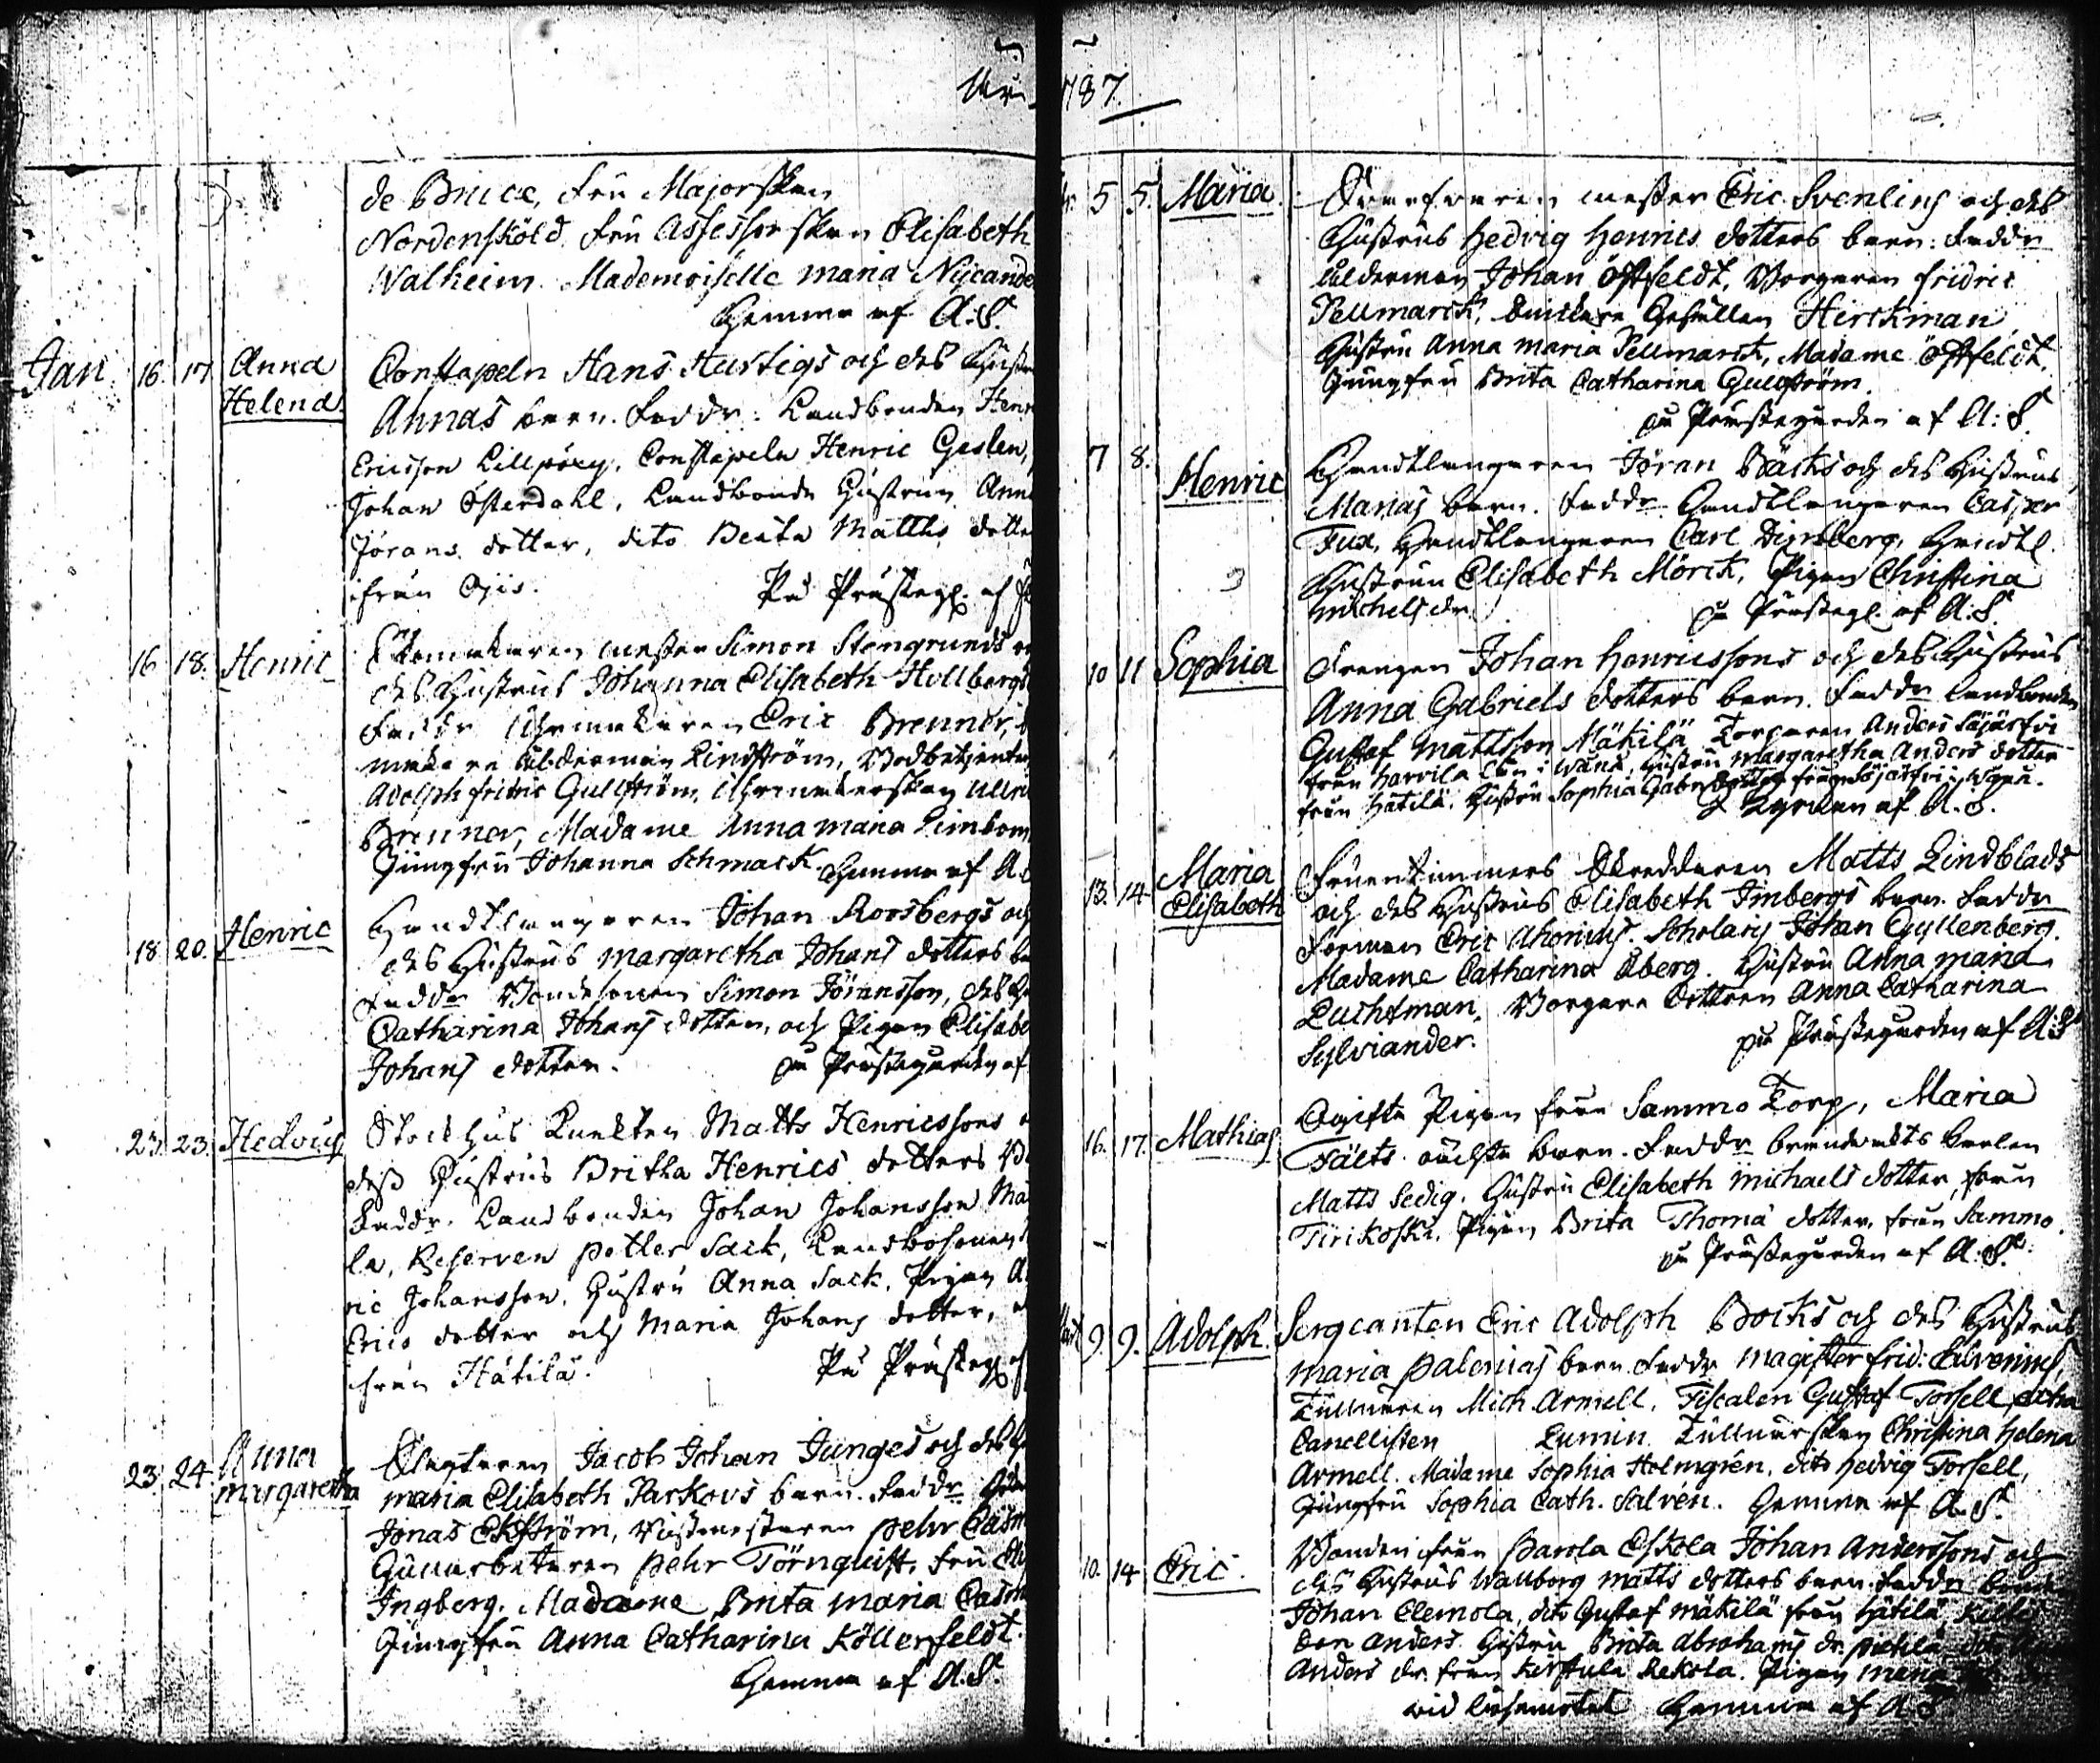 År 1787.
de Bruce, Fru Majorskan
Nordensköld. Fru Assessorskan Elisabeth
Walheim. Mademoiselle Maria Nycande
Hemma af A.S.
Jan. 16. 17 Anna Helena. Constapeln Hans Hastigs och des Hustru
Annas barn. Faddr: Landbonden Hen
Ericsson Lillpöry, Constapeln Henric Geslen,
Johan Österdahl, Landbonde Hustrun Anna
Jörans dotter, dito Beata Matths dotter
ifrån Ojis. På Prästeg. af
16 18. Henric Skomakaren mester Simon Stengrunds
des Hustrus Johanna Elisabeth Hollbergs
Faddr Uhrmakaren Eric Brenner,
makare ålderman Lindström, Vådbetjenten
Adolph Fridric Gullström, Uhrmakerskan Ullri
Brenner, Madame Anna Maria Limbom
Jungfru Johanna Schmack. Hemma af A.
18 20. Henric Handtlangaren Johan Roosbergs och
des Hustrus Margaretha Johans dotters
Faddr Bondesonen Simon Jöransson, des
Catharina Johans dotter, och Pigan Elisabe
Johans dotter. på Prästegården af
23. 23. Hedvig Stockhus Knekten Matts Henricssons
dess Hustrus Britha Henrics dotters
Faddr. Landbonden Johan Johansson Mä
la, Reserven Petter Sack, Landbosonen
ric Johansson, Hustru Anna Sack. Pigan
Erics dotter och Maria Johans dotter,
ifrån Hätilä. På Prästeg. af
23. 24 Anna Margaretha Slagtaren Jacob Johan Junges och des
Maria Elisabeth Parkovs barn. Faddr
Jonas Ekström, Pehr Casm
Pehr Törnquist, Fru
Ingberg. Madame Brita Maria Casm
Jungfru Anna Catharina Köllerfeldt.
Hemma af A.S.
5 5. Maria. mester Eric Svenlins och des
Hustrus Hedvig Henrics dotters barn: Faddr
ålderman Johan Öffeldt, Borgaren Fridric
Pellmarck, Gesällen Hirckman,
Hustru Anna Maria Pellmarck, Madame Öffeldt.
Jungfru Brita Catharina Gullström.
på Prästegården af A:S.
7 8. Henric Handtlangaren Jöran Bäcks och des Hustrus
Marias barn. Faddr. Handtlangaren Casper
Fux, Handtlangaren Carl Dimberg, Handtl.
Hustrun Elisabeth Mörck, Pigan Christina
Michels dr. på Prästeg. af A.S.
10 11 Sophia Drengen Johan Henricssons och des Hustrus
Anna Gabriels dotters barn. Faddr Landbonden
Gustaf Mattsson Mäkilä Torparen Anders Säjärfvi
från Harvila i Wånå, Hustru Margaretha Anders dotter
från Hätilä. Hustru Sophia Gabr. dotter från Säjärfvi i Wånå.
I Kyrkan af A.S.
13. 14 Maria Elisabeth Fruentimmers Skreddaren Matts Lindblads
och des Hustrus Elisabeth Imbergs barn. Faddr
Förman Eric Ahonius. Scholaris Johan Gyllenberg.
Madame Catharina Åberg. Hustru Anna Maria
Luchtman. Borgare Dottren Anna Catharina
Sylviander. på Prästegården af A.S.
16. 17. Mathias Ogifta Pigan från Sammo Torp, Maria
Fälts oächta barn. Faddr
Matts Sedig. Hustru Elisabeth Michaels dotter, från
Tirikoski. Pigan Brita Thomä dotter, från Sammo.
på Prästegården af A.S.
9. 9. Adolph. Sergeanten Eric Adolph Bocks och des Hustrus
Maria Palenias barn. Faddr Magister Frid:
Tullnären Mich. Armell. Fiscalen Gustaf Forsell
Cancellisten Lumin. Tullnärskan Christina Helena
Armell. Madame Sophia Holmgrén, dito Hedvig Forsell,
Jungfru Sophia Cath. Salvén. Hemma af A.S.
10. 14 Eric. Bonden från Parola Eskola Johan Anderssons och
des Hustrus Wallborg Matts dotters barn. Faddr bonden
Johan Clemola, dito Gustaf Mäkilä från Hätilä
Anders. Hustru Brita Abrahams dr.
Anders dr. från Kirstula Rekola. Pigan
Hemma af A.S.